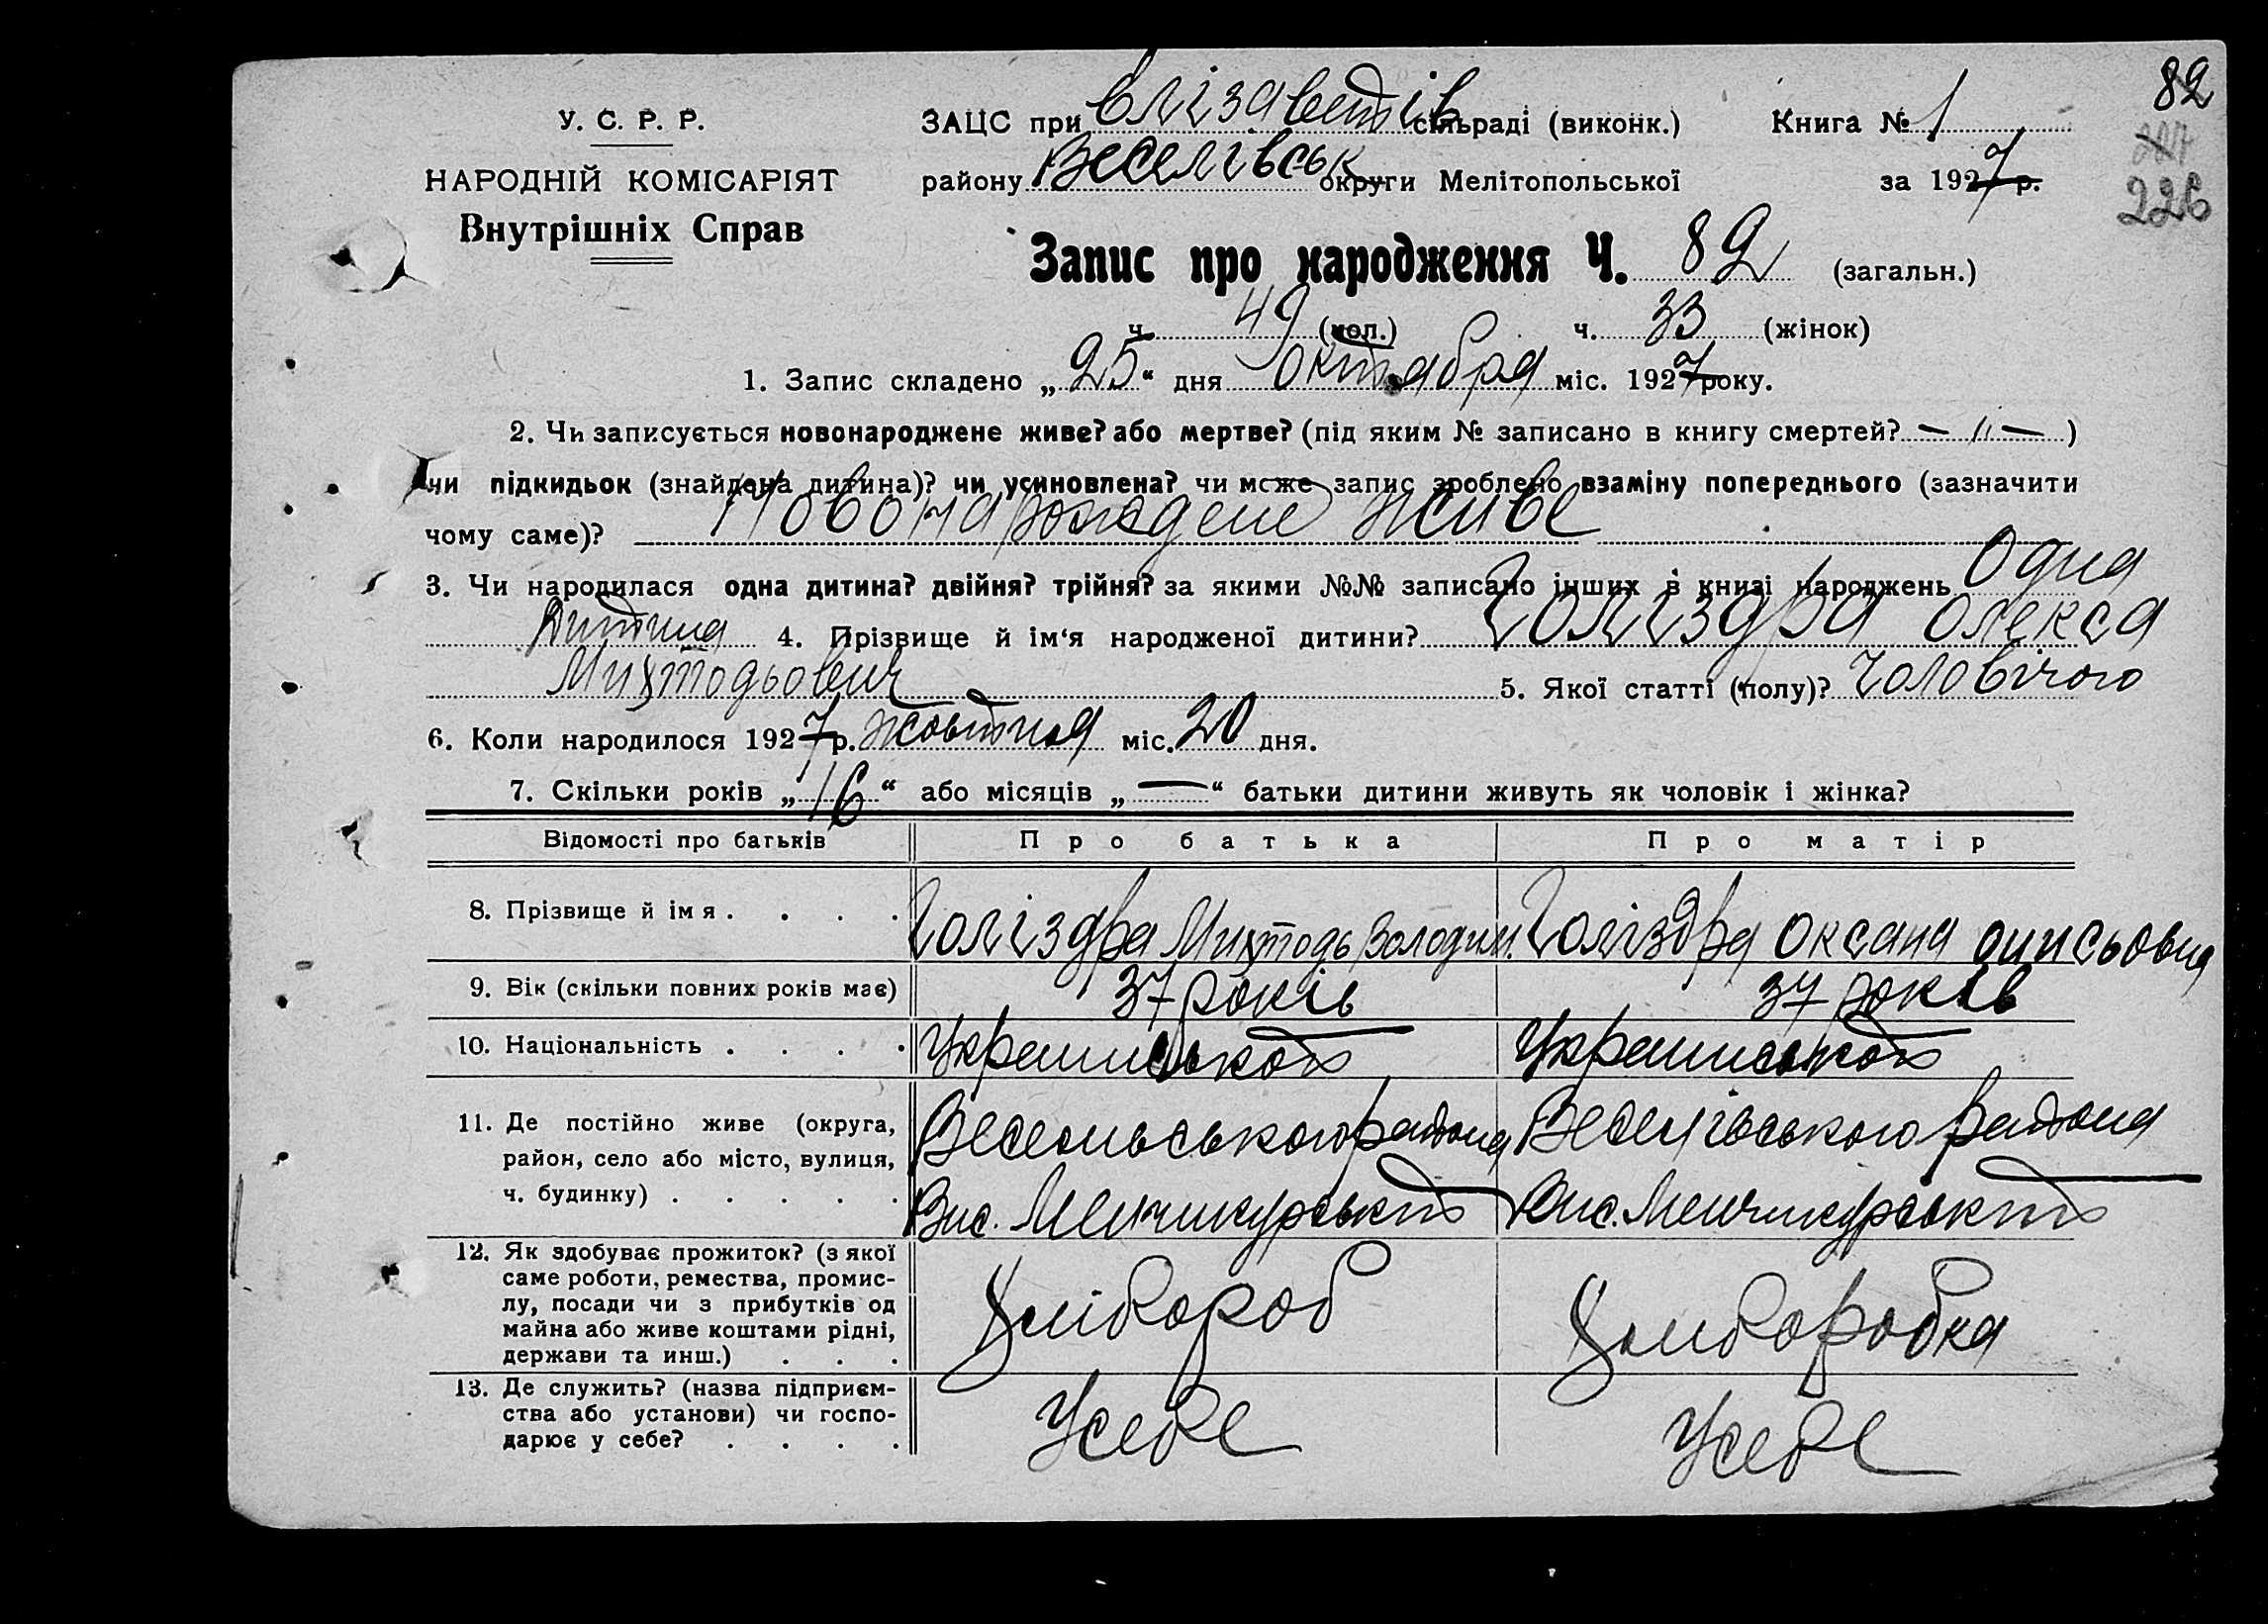 82
У. С. Р. Р.
ЗАЦС при Єлізаветів сільраді (виконк.) Книга № 1
НАРОДНІЙ КОМІСАРІЯТ
району Веселівськ округи Мелітопольської за 1927 р.
226
Внутрішніх Справ
Запис про народження Ч. 82 (загальн.)
ч. 49 (чол.) ч. 33 (жінок)
1. Запис складено „25“ дня октября міс. 1927 року.
2. Чи записується новонароджене живе? або мертве? (під яким № записано в книгу смертей? — " — )
чи підкидьок (знайдена дитина)? чи усиновлена? чи може запис зроблено взаміну попереднього (зазначити
чому саме)? Новонарождене живе
3. Чи народилася одна дитина? двійня? трійня? за якими №№ записано інших в книзі народжень Одна
Дитина 4. Прізвище й ім‘я народженої дитини? Голіздра Олекса
5. Якої статті (полу)? Чоловічого
6. Коли народилося 1927 р. жовтня міс. 20 дня.
7. Скільки років „16“ або місяців „—“ батьки дитини живуть як чоловік і жінка?
Відомості про батьків Про батька Про матір
8. Прізвище й імя . . . . Голіздра Володим. Голіздра Оксана
9. Вік (скільки повних років має) 37 років 37 років
10. Національність . . . .
11. Де постійно живе (округа,
район, село або місто, вулиця, района Веселівського района
ч. будинку) . . . . .
12. Як здобуває прожиток? (з якої
саме роботи, ремества, промис-
лу, посади чи з прибутків од Хлібороб Хліборобка
майна або живе коштами рідні,
держави та инш.) . . .
13. Де служить? (назва підприєм-
ства або установи) чи госпо- У себе У себе
дарює у себе? . . . .